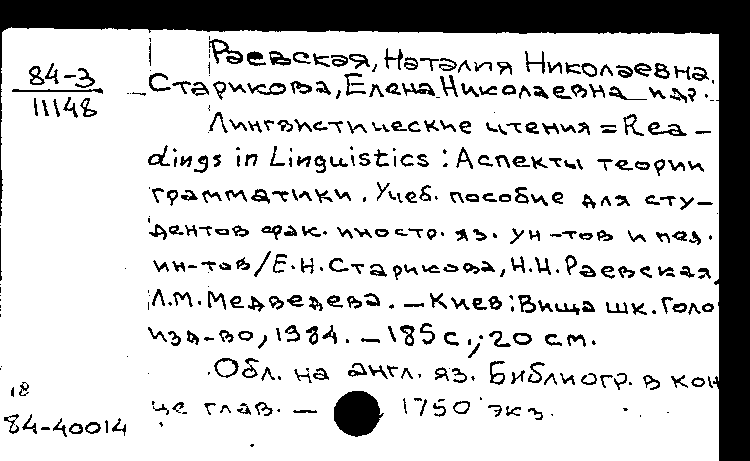 Раевская, Наталия Николаевна.
84-3
11148
Старикова, Елена Николаевна и др.
Лингвистические чтения = Rea-
dings in Linguistics : Аспекты теории
грамматики. Учеб. пособие для сту-
дентов фак. иностр. яз. ун-тов и пед.
ин-тов / Е.Н. Старикова, Н.Н. Раевская,
Л.М. Медведева. — Киев : Вища шк. Голо
изд-во, 1984. — 185 с.; 20 см.
Обл. на англ. яз. Библиогр. в кон
це глав. — 1750 экз.
18
84-40014